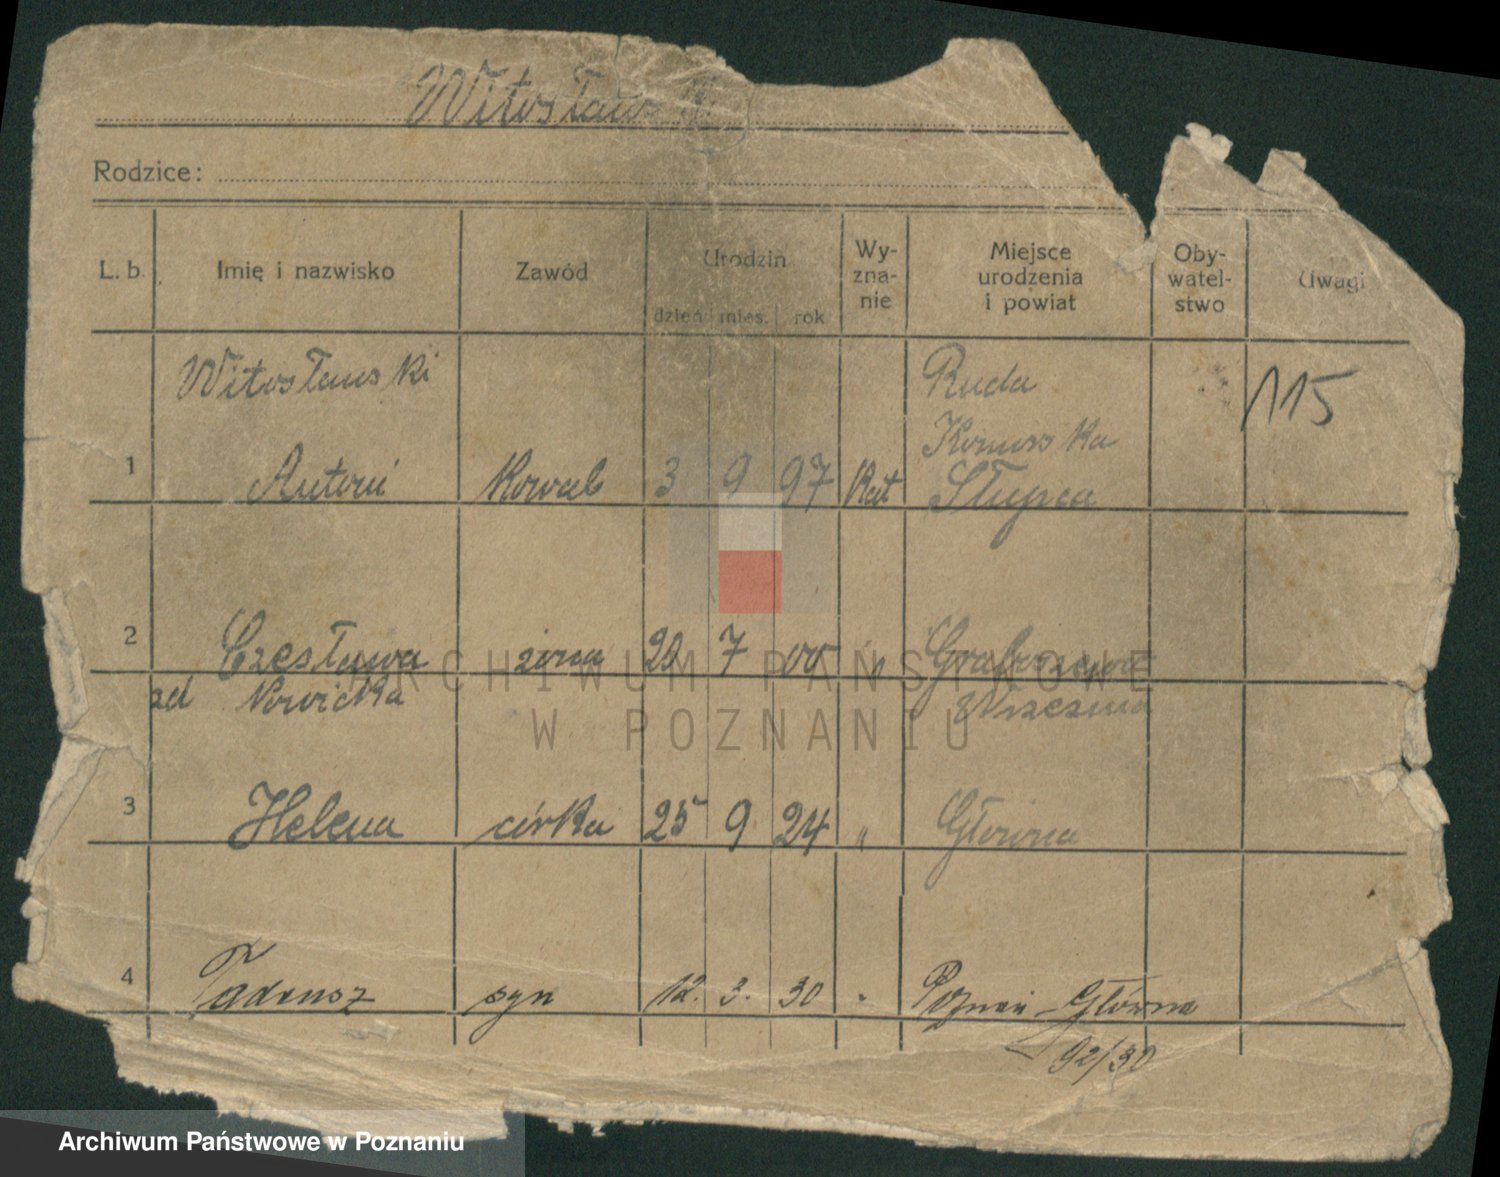 Witosławski
Rodzice:
L. b. Imię i nazwisko Zawód Urodzin dzień mies. rok Wy-zna-nie Miejsce urodzenia i powiat Oby-watel-stwo Uwagi
Witosławski Ruda 115
Komorska
1 Antoni Kowal 3 9 97 Kat Słupca
2 Czesława żona 20 7 00 "
zd Nowicka Września
3 Helena córka 25 9 24 " Główna
4 Tadeusz syn 12. 3. 30 " Poznań-Główna
92/30
ARCHIWUM PAŃSTWOWE
W POZNANIU
Archiwum Państwowe w Poznaniu